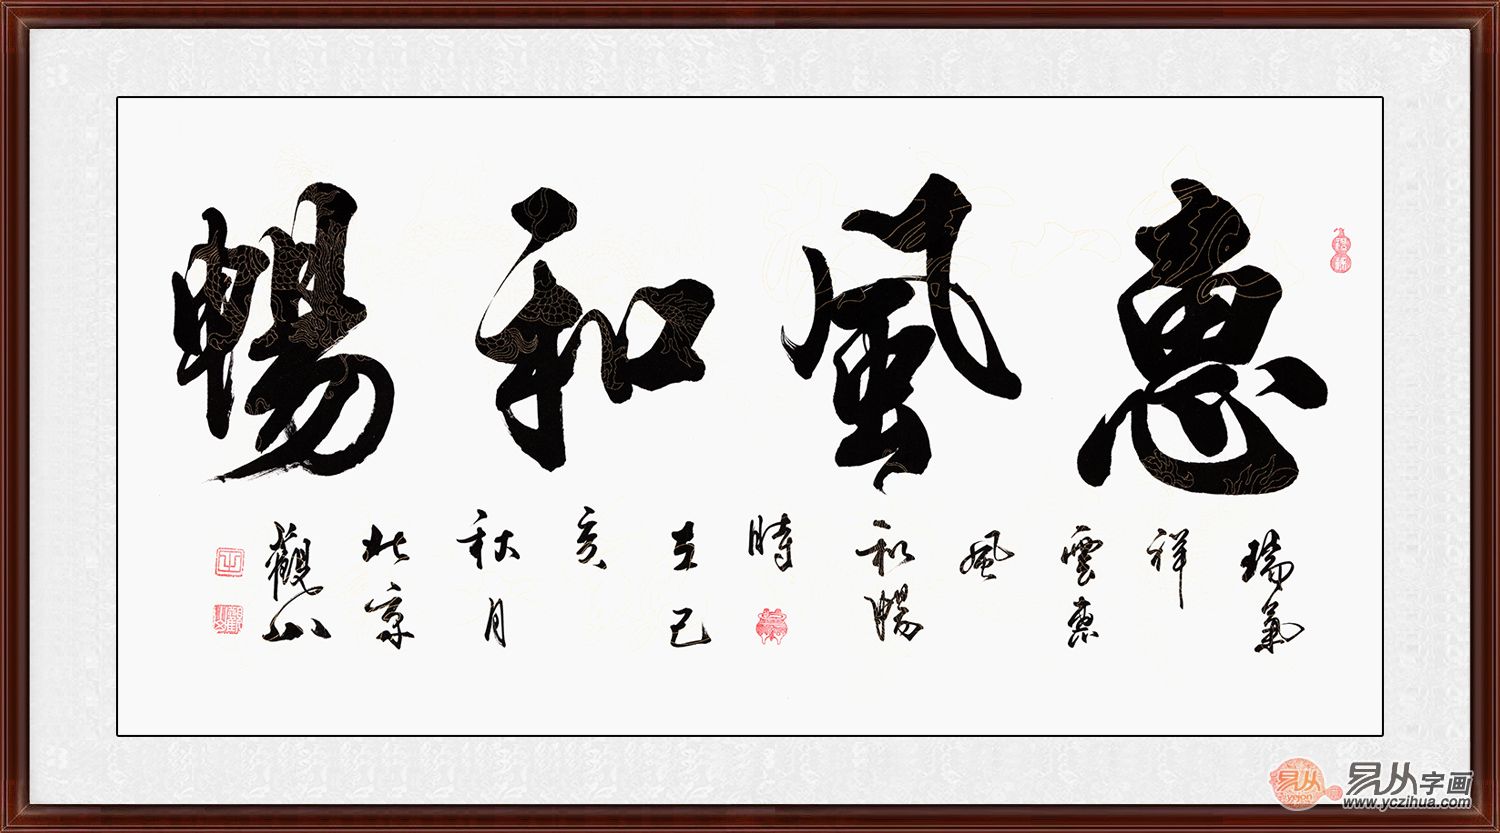 惠風和暢
瑞氣
祥
雲惠
風
和暢
時
在己
亥
秋月
北京
觀山
易从字画
www.yczihua.com